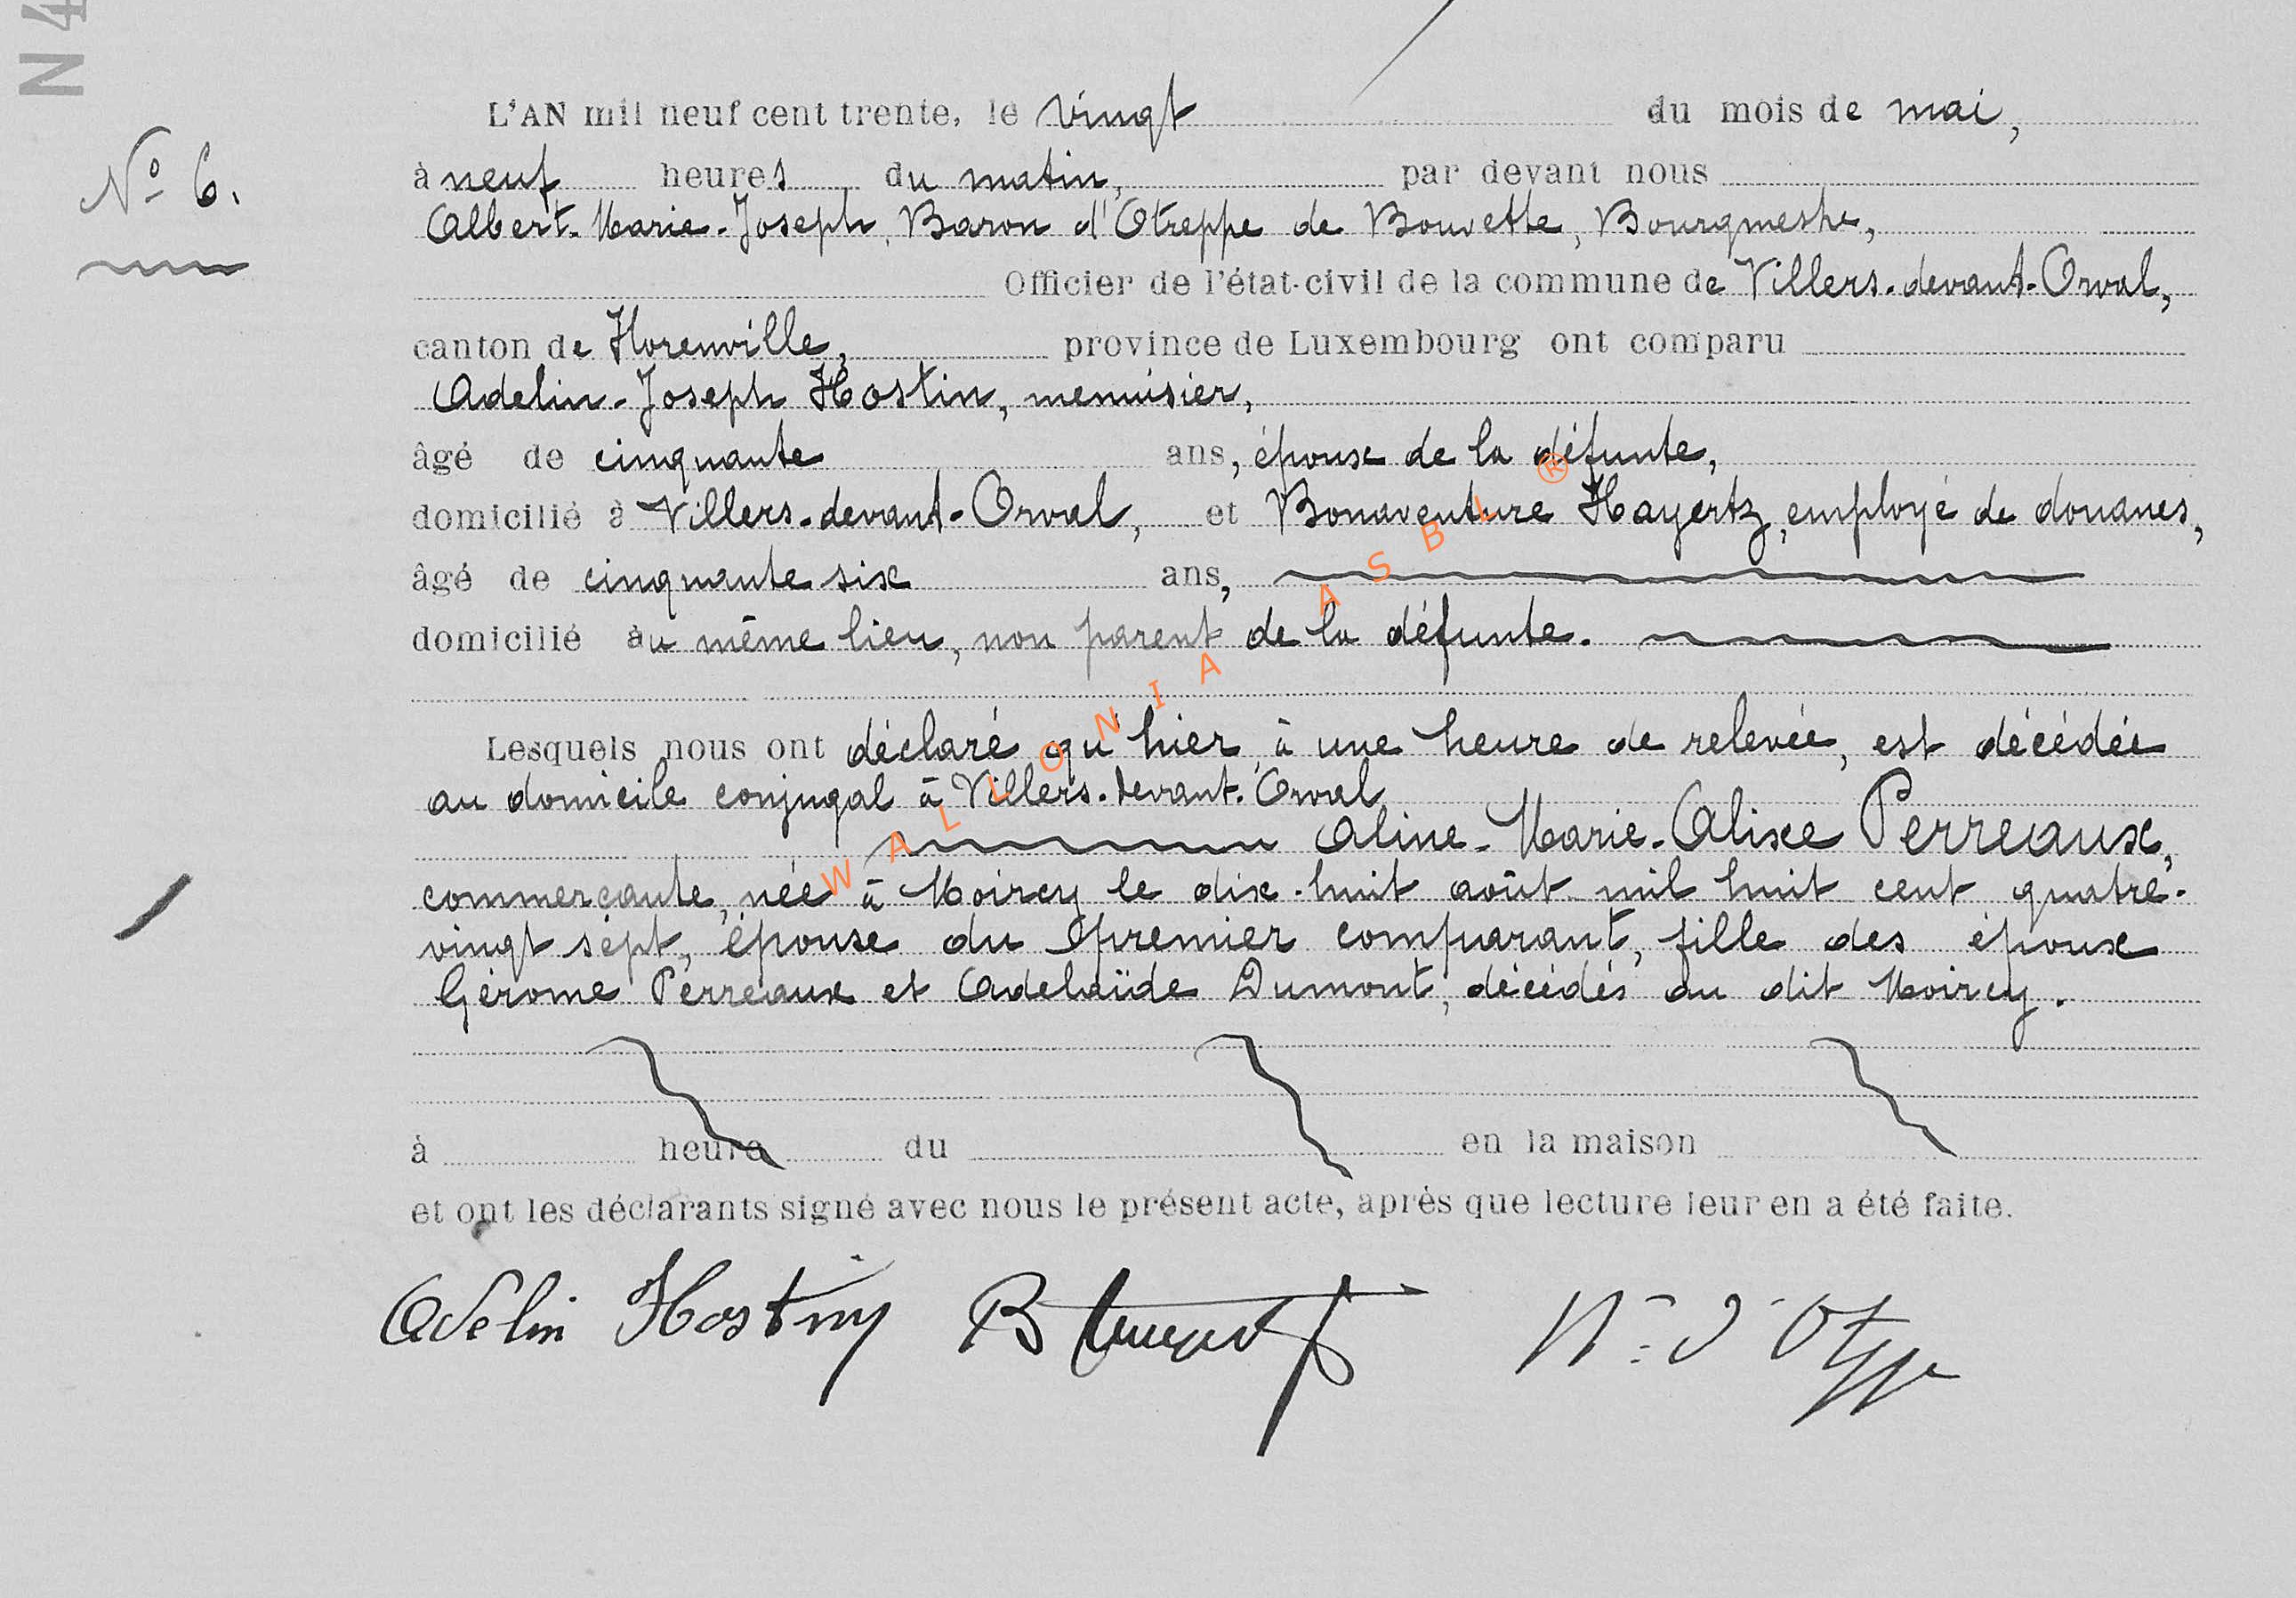 N 4
L'AN mil neuf cent trente, le vingt du mois de mai,
N° 6.
à neuf heures du matin, par devant nous
Albert-Marie-Joseph, Baron d'Otreppe de Bouvette, Bourgmestre,
Officier de l'état-civil de la commune de Villers-devant-Orval,
canton de Florenville, province de Luxembourg ont comparu
Adelin-Joseph Hostin, menuisier,
âgé de cinquante ans, époux de la défunte,
domicilié à Villers-devant-Orval, et Bonaventure Hayertz, employé de douanes,
âgé de cinquante six ans,
domicilié au même lieu, non parent de la défunte.
Lesquels nous ont déclaré qu'hier, à une heure de relevée, est décédée
au domicile conjugal à Villers-devant-Orval
Aline-Marie-Alixe Perreaux,
commerçante, née à Moircy le dix-huit août mil huit cent quatre-
vingt sept, épouse du premier comparant, fille des époux
Gérome Perreaux et Adelaïde Dumont, décédés au dit Moircy.
à heure du en la maison
et ont les déclarants signé avec nous le présent acte, après que lecture leur en a été faite.
Adelin Hostin B d'Otreppe
WALLONIA ASBL ®